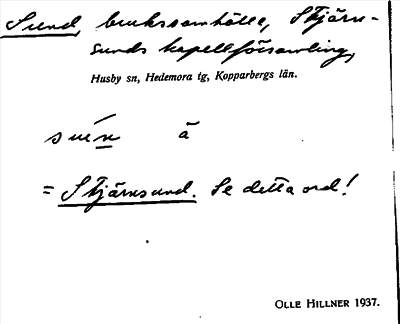 Sund, brukssamhälle, Stjärn-
sunds kapellförsamling,
Husby sn, Hedemora tg, Kopparbergs län.
suǹn ä
= Stjärnsund. Se detta ord!
OLLE HILLNER 1937.